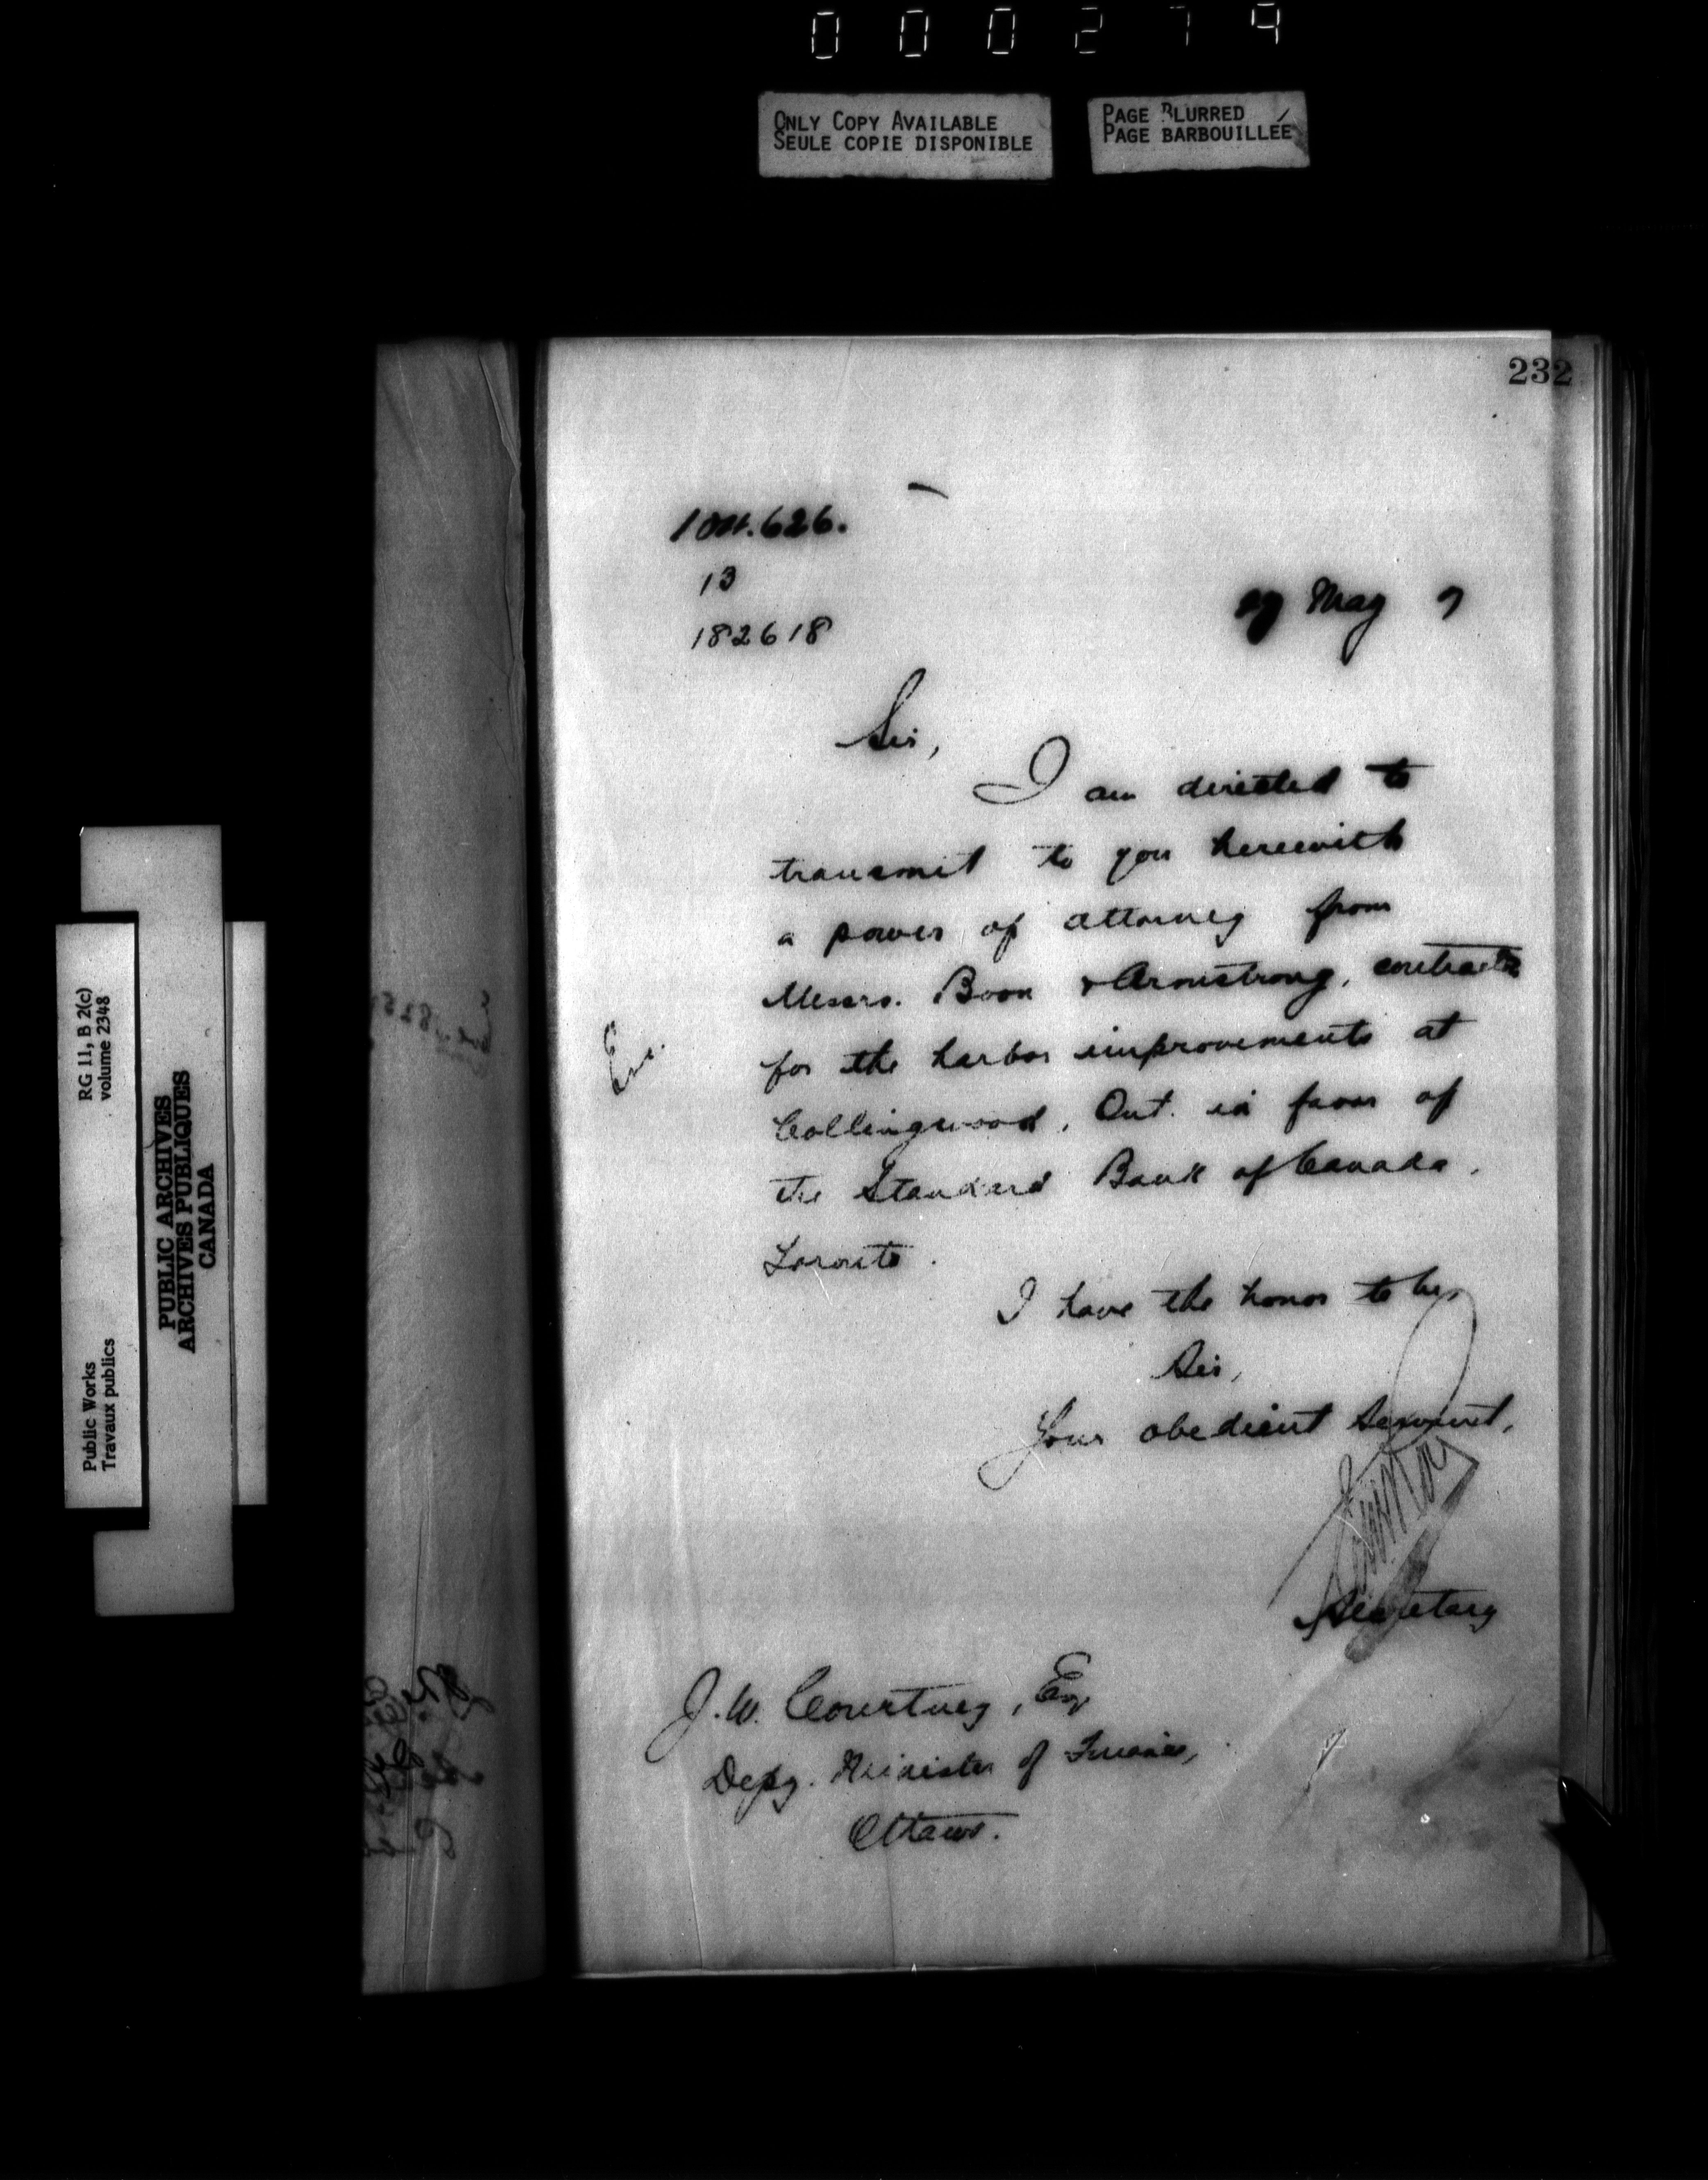 000279
ONLY COPY AVAILABLE
SEULE COPIE DISPONIBLE
PAGE BLURRED
PAGE BARBOUILLÉE
232
13
182618
May 7
Sir,
I am directed to
transmit to you herewith
a power of attorney from
Messrs. Boon & Armstrong, contractors
for the harbor improvements at
Enc.
Collingwood, Ont. in favor of
the Standard Bank of Canada,
Toronto.
I have the honor to be,
Sir,
Your obedient Servant,
Secretary
J. W. Courtney, Esq
Depy. Minister of Finance,
Ottawa.
RG 11, B 2(c)
volume 2348
Public Works
Travaux publics
PUBLIC ARCHIVES
ARCHIVES PUBLIQUES
CANADA